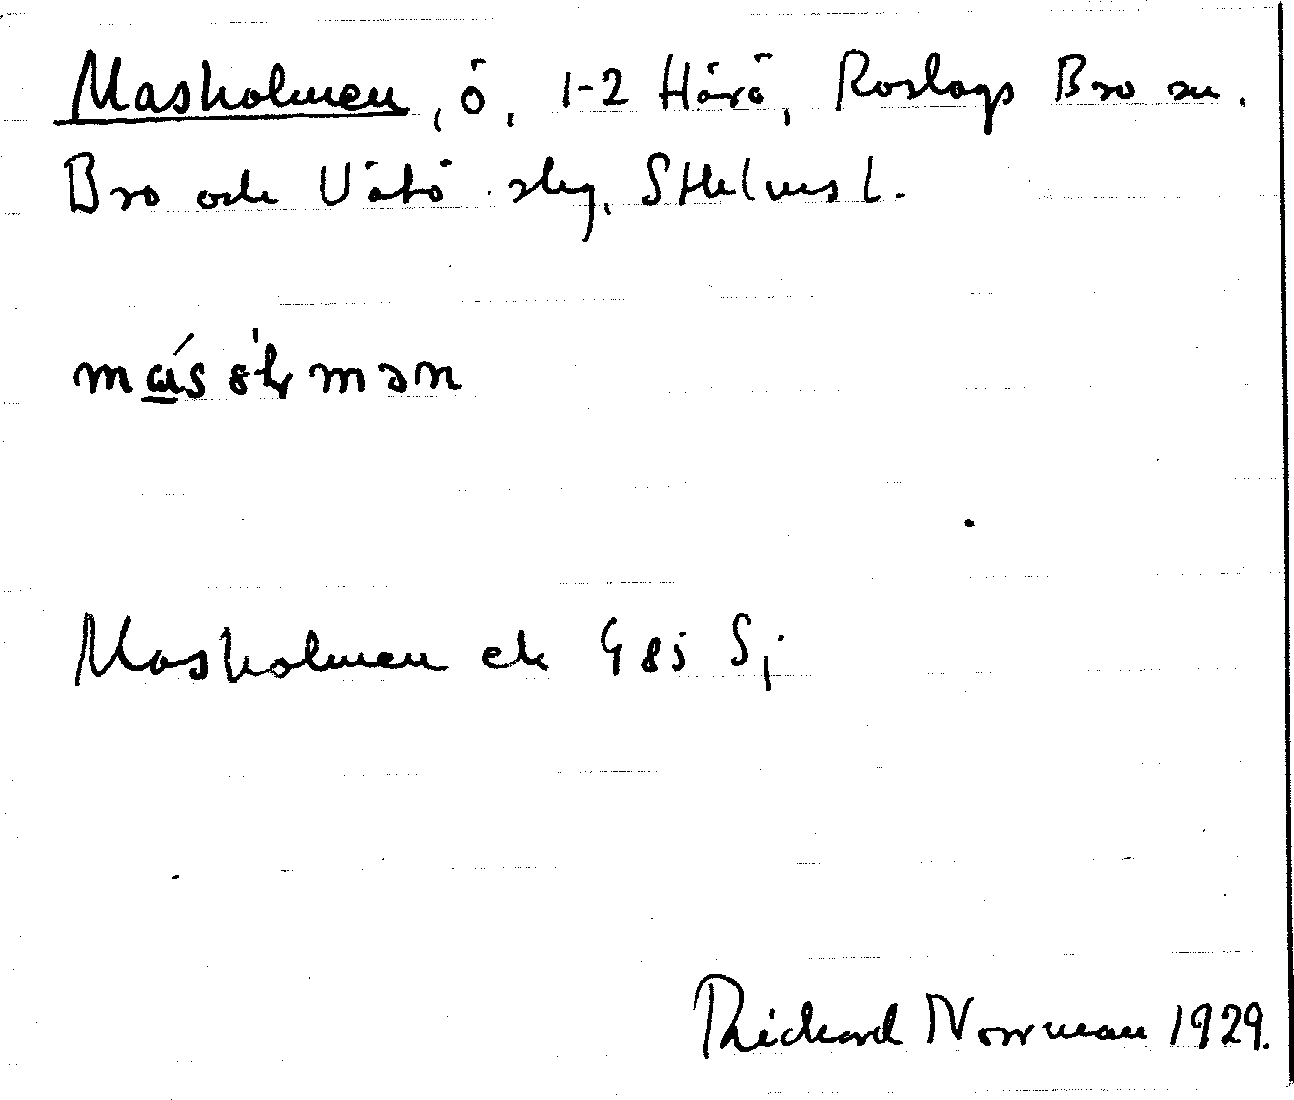 Masholmen, ö, 1-2 Härö, Roslags Bro sn.
Bro och Vätö slg, Sthlms l.
Masholmen ek 485 Sj
Rickard Norrman 1929.